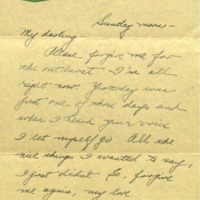 Sunday morn -
My darling
Please forgive me for
the outburst - I'm all
right now. Yesterday was
just one of those days and
when I heard your voice
I let myself go. All the
nice things I wanted to say,
I just didnt. So, forgive
me again, my love